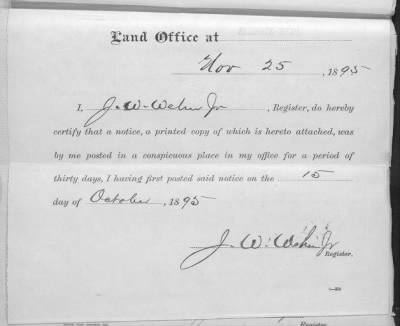 Land Office at
Nov 25, 1895
I, J. W. Weher Jr, Register, do hereby
certify that a notice, a printed copy of which is hereto attached, was
by me posted in a conspicuous place in my office for a period of
thirty days, I having first posted said notice on the 15
day of October, 1895
J. W. Weher Jr
Register.
Register